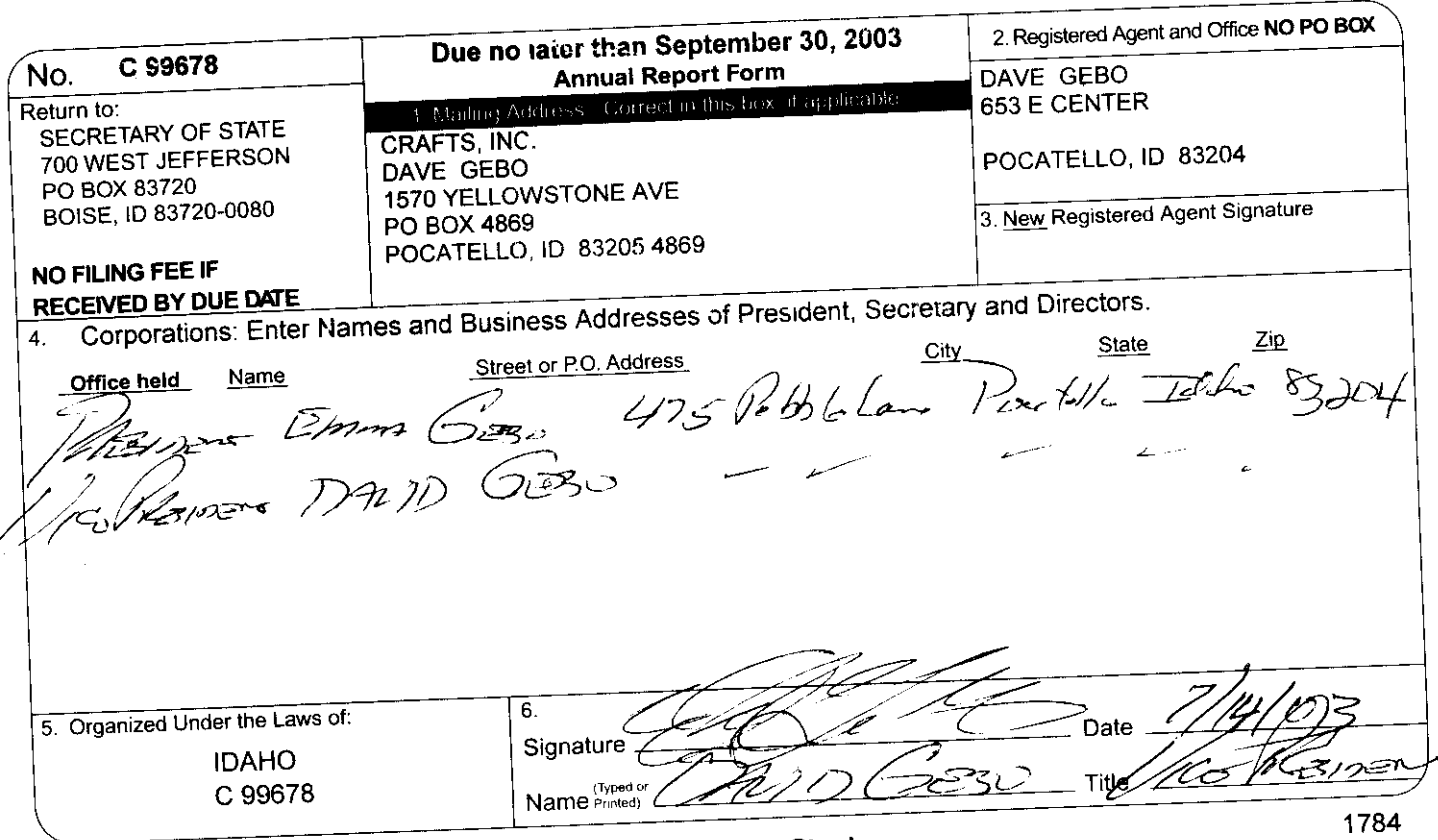 No. C 99678
Return to:
SECRETARY OF STATE
700 WEST JEFFERSON
PO BOX 83720
BOISE, ID 83720-0080
NO FILING FEE IF
RECEIVED BY DUE DATE
Due no later than September 30, 2003
Annual Report Form
1. Mailing Address: Correct in this box, if applicable
CRAFTS, INC.
DAVE GEBO
1570 YELLOWSTONE AVE
PO BOX 4869
POCATELLO, ID 83205 4869
2. Registered Agent and Office NO PO BOX
DAVE GEBO
653 E CENTER
POCATELLO, ID 83204
3. New Registered Agent Signature
4. Corporations: Enter Names and Business Addresses of President, Secretary and Directors.
Office held Name Street or P.O. Address City State Zip
President Emma Gebo 475 Pebble Lane Pocatello Idaho 83204
Vice President DAVID GEBO
5. Organized Under the Laws of:
IDAHO
C 99678
6.
Signature Date 7/14/03
Name (Typed or Printed) DAVID GEBO Title Vice President
1784